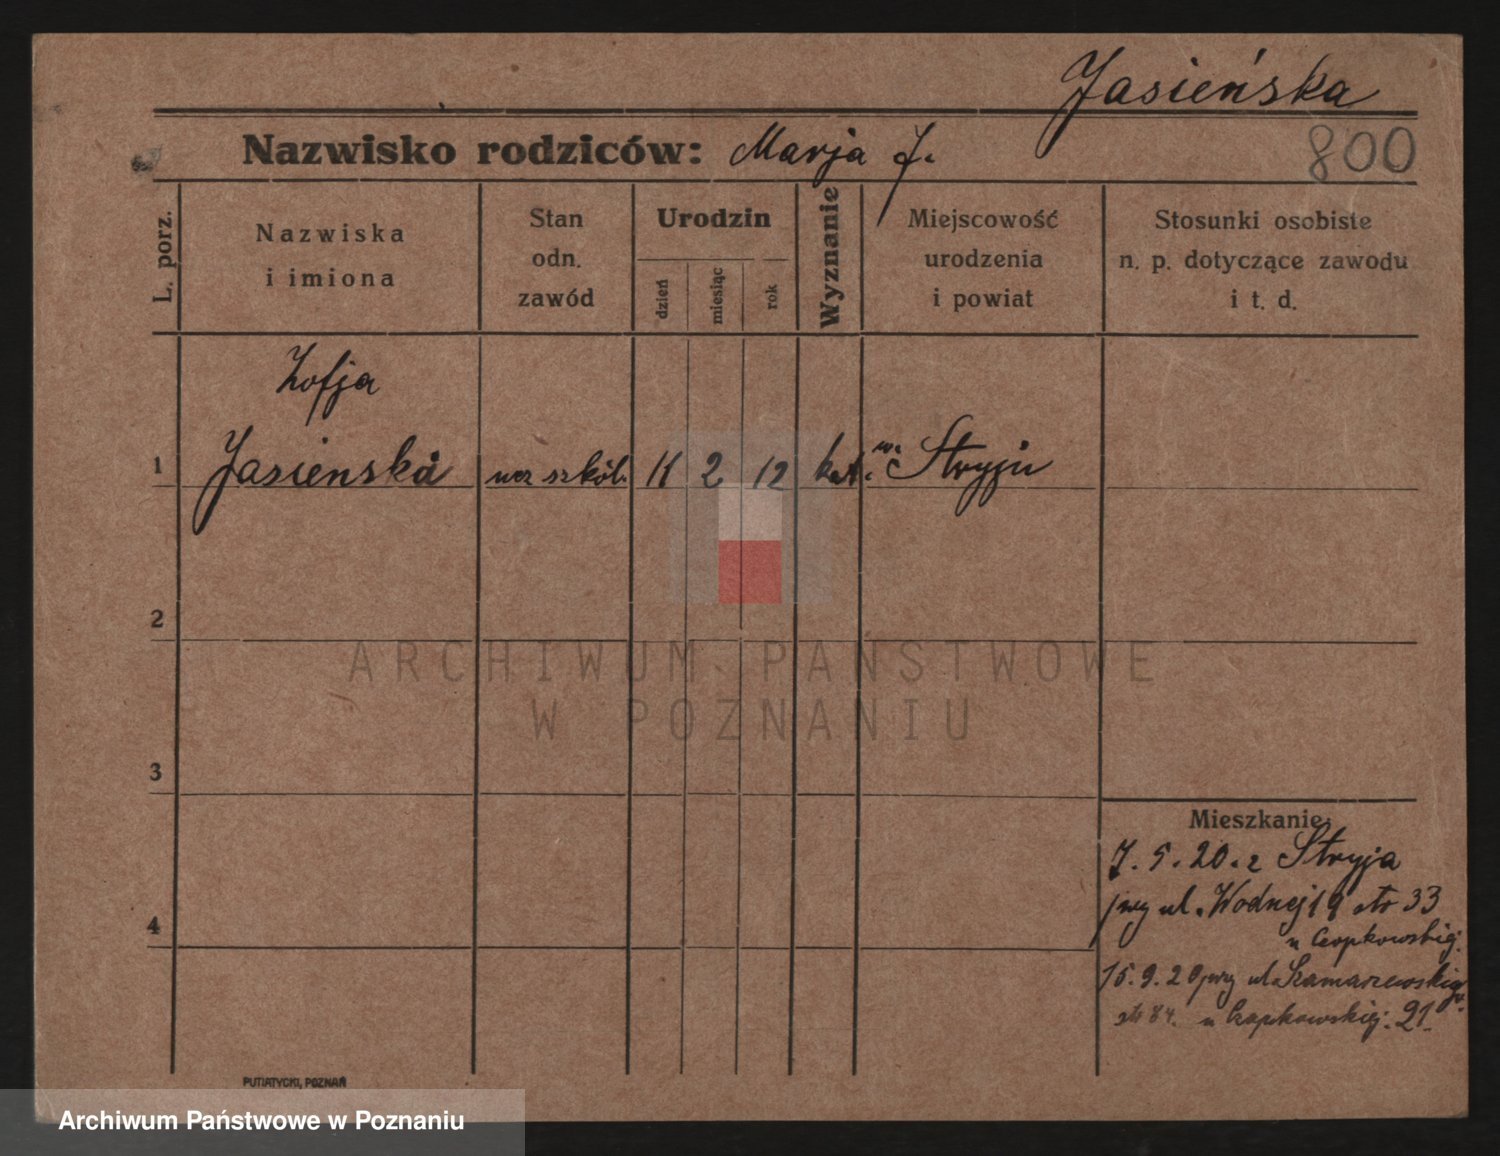 Jasieńska
Nazwisko rodziców: Marja J.
800
L. porz.
Nazwiska
i imiona
Stan
odn.
zawód
Urodzin
dzień
miesiąc
rok
Wyznanie
Miejscowość
urodzenia
i powiat
Stosunki osobiste
n. p. dotyczące zawodu
i t. d.
Zofja
1 Jasienska ucz szkół. 11 2 12 kat. w. Stryju
2
ARCHIWUM PAŃSTWOWE
W POZNANIU
3
Mieszkanie:
7. 5. 20. z Stryja
przy ul. Wodnej 19 sto 33
4
u Czopkowskiej.
15. 9. 20 przy ul. Szamarzewskiego
sto 84. u Czopkowskiej. 21.
PUTIATYCKI, POZNAŃ
Archiwum Państwowe w Poznaniu